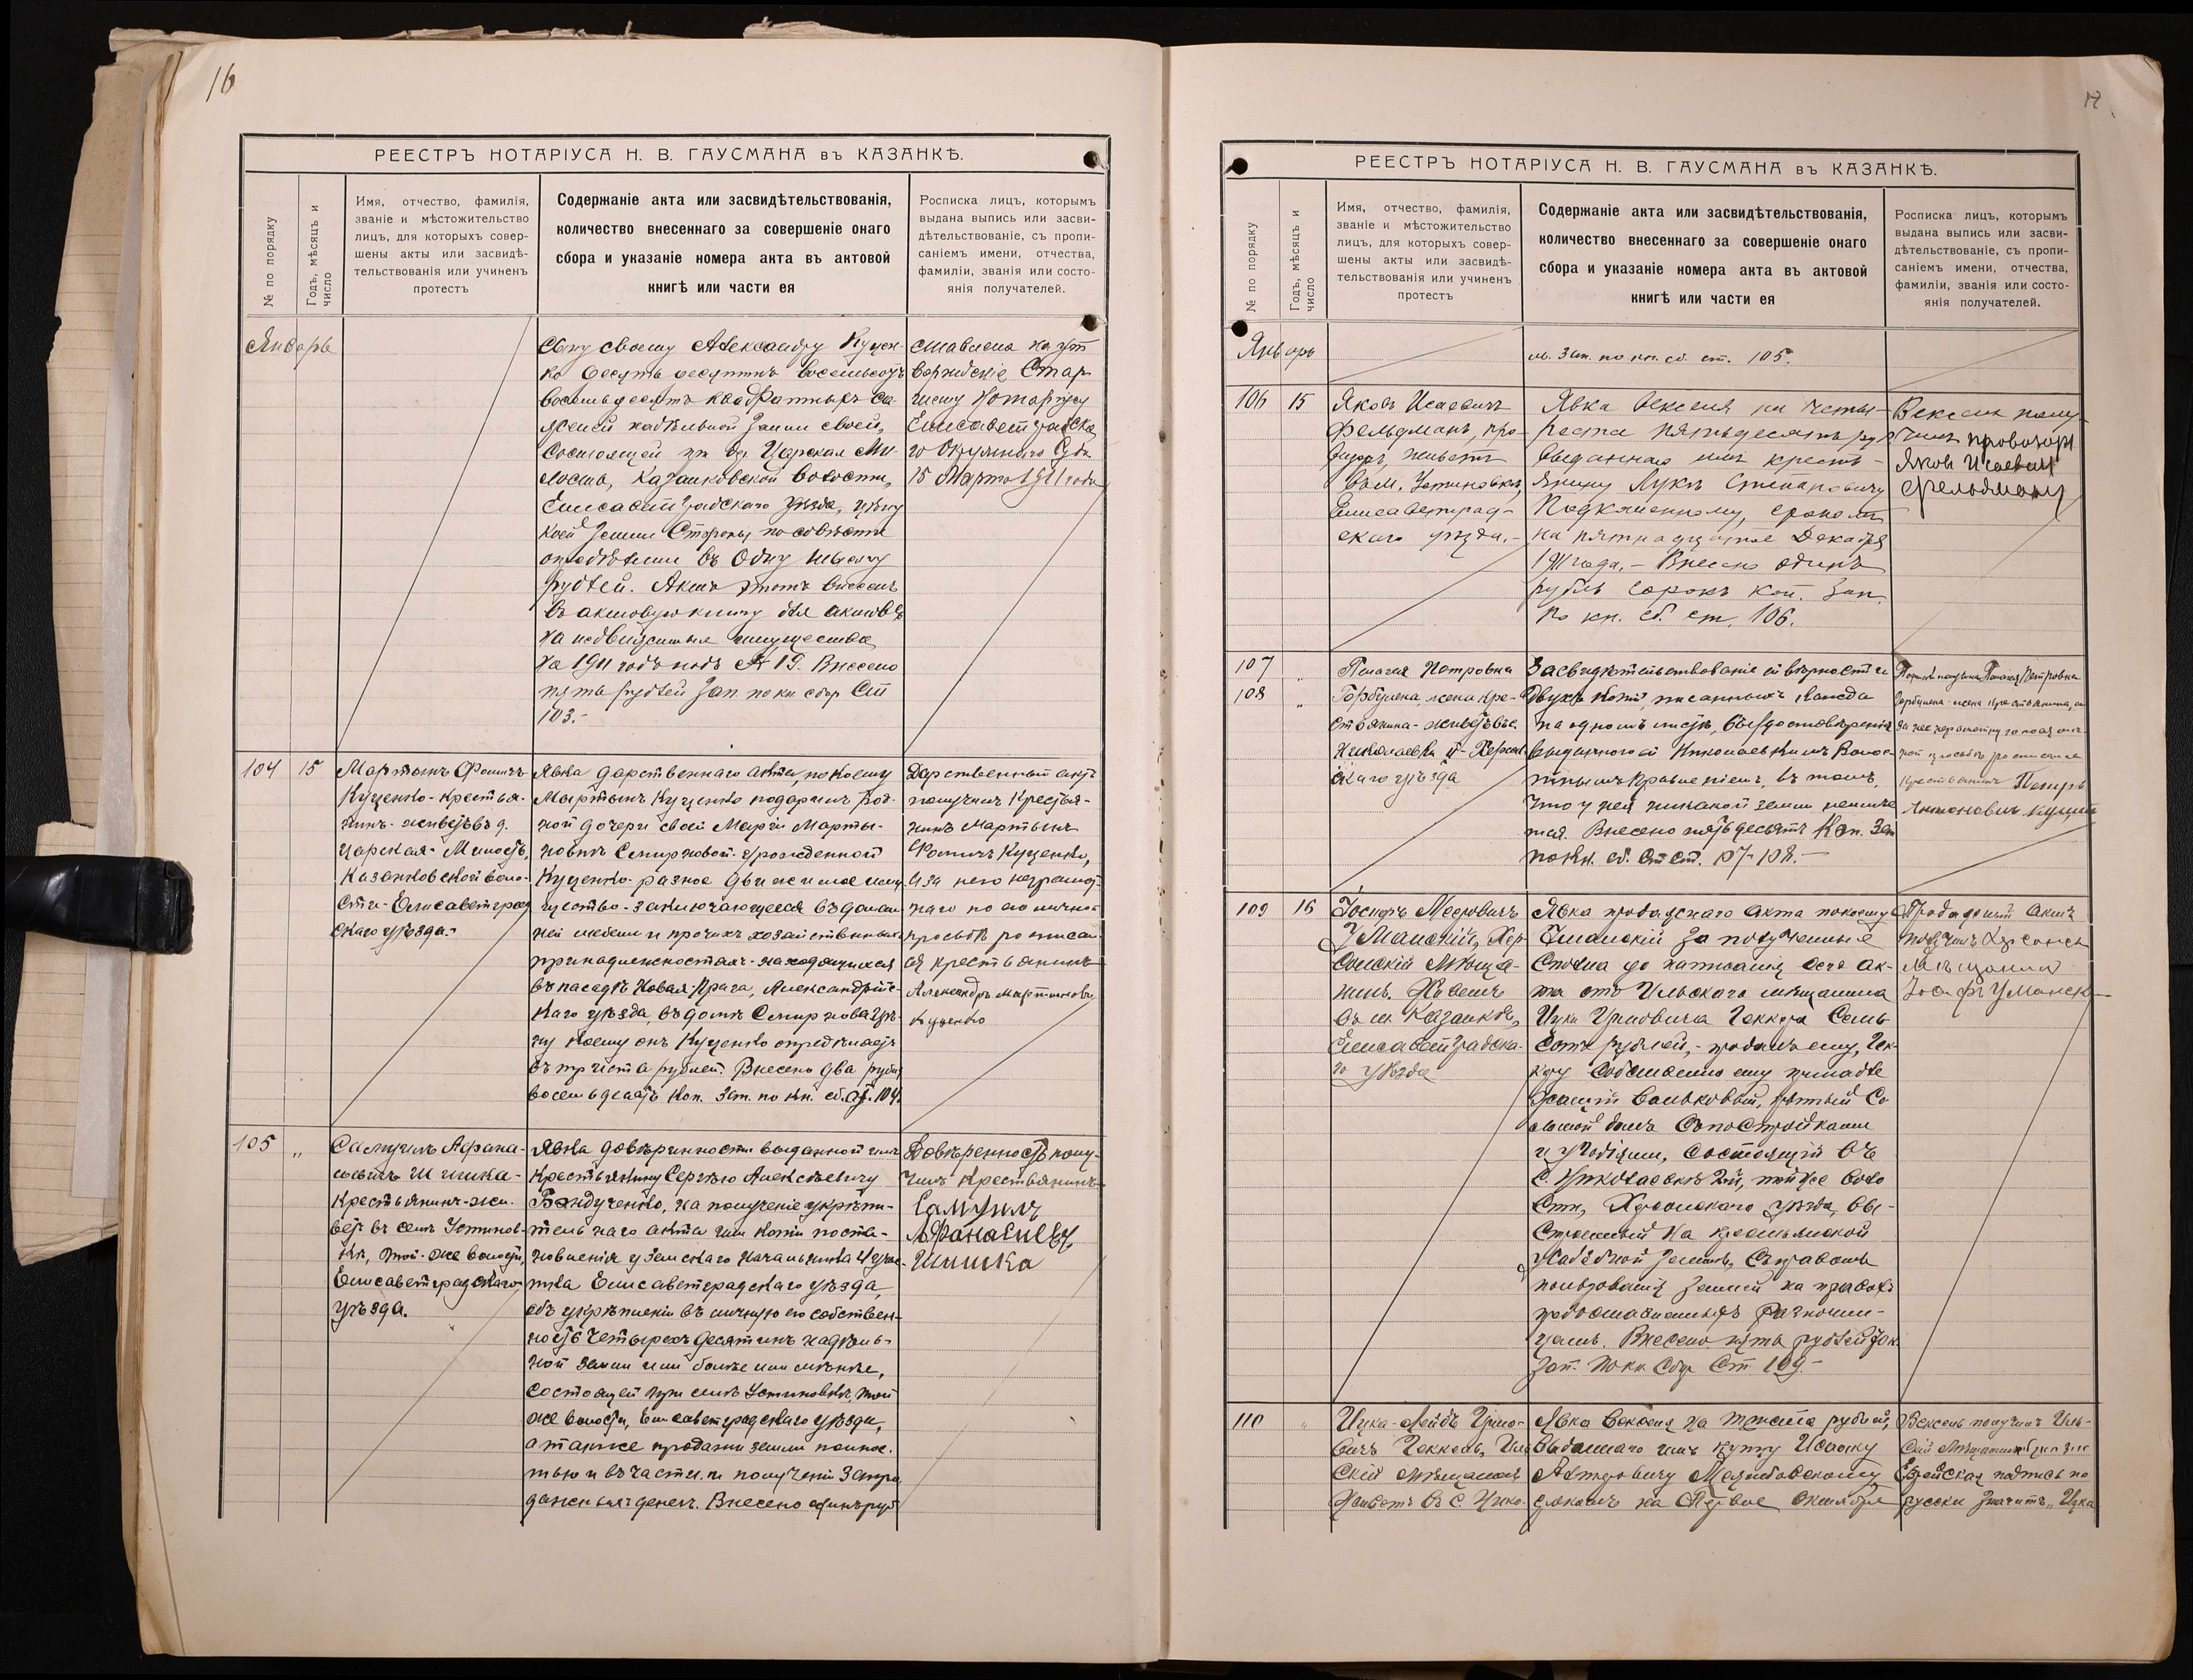 16
РЕЕСТРЪ НОТАРІУСА Н. В. ГАУСМАНА въ КАЗАНКѢ.
№ по порядку
Годъ, мѣсяцъ и число
Имя, отчество, фамилія,
званіе и мѣстожительство
лицъ, для которыхъ совер-
шены акты или засвидѣ-
тельствованія или учиненъ
протестъ
Содержаніе акта или засвидѣтельствованія,
количество внесеннаго за совершеніе онаго
сбора и указаніе номера акта въ актовой
книгѣ или части ея
Росписка лицъ, которымъ
выдана выпись или засви-
дѣтельствованіе, съ пропи-
саніемъ имени, отчества,
фамиліи, званія или состо-
янія получателей.
Январь
сыну своему Александру Куцен-
ко десять десятинъ восемьсотъ
восемьдесятъ квадратныхъ са-
женей надѣльной земли своей,
состоящей при дер. Царская Ми-
лость, Казанковской волости,
Елисаветградскаго уѣзда, цѣну
коей земли стороны по совѣсти
опредѣлили въ одну тысячу
рублей. Актъ этотъ внесенъ
въ актовую книгу для актовъ
на недвижимыя имущества
на 1911 годъ подъ № 19. Внесено
пять рублей Зап. по кн. сбор. ст.
103.-
ставлена на ут
вержденіе Стар-
шему Нотаріусу
Елисаветградска
го Окружнаго Суда
15 Марта 1911 года
104
15
Мартынъ Фомичъ
Куценко - крестья-
нинъ - живетъ въ д.
Царская-Милость,
Казанковской воло-
сти - Елисаветград
скаго уѣзда.-
Явка дарственнаго акта, по коему
Мартынъ Куценко подарилъ род-
ной дочери своей Маріи Марты-
новнѣ Смирновой - урожденной
Куценко - разное движимое иму-
щество - заключающееся въ домаш
ней мебели и прочихъ хозяйственныхъ
принадлежностяхъ - находящихся
въ посадѣ Новая-Прага, Александрій-
скаго уѣзда, въ домѣ Смирнова цѣ-
ну коему онъ Куценко опредѣляетъ
въ триста рублей. Внесено два рубля
восемьдесятъ коп. Зап. по кн. сб. ст. 104.
Дарственный актъ
получилъ крестья-
нинъ Мартынъ
Фомичъ Куценко,
а за него неграмот-
наго по его личной
просьбѣ росписал-
ся крестьянинъ
Александръ Мартыновъ
Куценко
105
„
Самуилъ Афана-
сьевичъ Шишка -
крестьянинъ - жи-
ветъ въ селѣ Устинов-
кѣ, той-же волости,
Елисаветградскаго
уѣзда.
Явка довѣренности выданной имъ
крестьянину Сергѣю Алексѣевичу
Бондученко, на полученіе укрѣпи-
тельнаго акта или копіи поста-
новленія у Земскаго Начальника 4 учас-
тка Елисаветградскаго уѣзда,
объ укрѣпленіи въ личную его собствен-
ность четырехъ десятинъ надѣль-
ной земли или болѣе или менѣе,
состоящей при селѣ Устиновкѣ, той
же волости, Елисаветградскаго уѣзда,
а также продажи земли полнос-
тью и въ части и полученіи запро
данныхъ денегъ. Внесено одинъ руб
Довѣренность полу-
чилъ крестьянинъ
Самуилъ
Афонасиевъ
Шишка
17
РЕЕСТРЪ НОТАРІУСА Н. В. ГАУСМАНА въ КАЗАНКѢ.
№ по порядку
Годъ, мѣсяцъ и число
Имя, отчество, фамилія,
званіе и мѣстожительство
лицъ, для которыхъ совер-
шены акты или засвидѣ-
тельствованія или учиненъ
протестъ
Содержаніе акта или засвидѣтельствованія,
количество внесеннаго за совершеніе онаго
сбора и указаніе номера акта въ актовой
книгѣ или части ея
Росписка лицъ, которымъ
выдана выпись или засви-
дѣтельствованіе, съ пропи-
саніемъ имени, отчества,
фамиліи, званія или состо-
янія получателей.
Январь
Зап. по кн. сб. ст. 105.
106
15
Яковъ Исаевичъ
Фельдманъ, про-
визоръ, живетъ
въ м. Устиновкѣ,
Елисаветград-
скаго уѣзда.-
Явка векселя на четы-
реста пятьдесятъ руб
выданнаго имъ кресть-
янину Лукѣ Степановичу
срокомъ
на пятнадцатое Декабря
1911 года. - Внесено одинъ
рубль сорокъ коп. Зап.
по кн. сб. ст. 106.
Вексель полу-
чилъ провизоръ
Яковъ Исаевичъ
Фельдманъ
107
108
„
„
Пелагея Петровна
Горбулева, жена кре-
стьянина - живетъ въ с.
Николаевкѣ II - Херсон
скаго уѣзда
Засвидѣтельствованіе вѣрности
двухъ копій, писанныхъ каждая
на одномъ листѣ, съ удостовѣренія
выданнаго ей Николаевскимъ Волос-
тнымъ Правленіемъ, въ томъ,
что у ней никакой земли неимѣе
тся. Внесено пятьдесятъ коп. Зап
по кн. сб. ст. ст. 107-108.-
Копіи получила Пелагея Петровна
Горбулева - жена крестьянина, а
за нее неграмотную по ея лич-
ной просьбѣ росписался
крестьянинъ Петръ
Антоновичъ
109
16
Іосифъ Мееровичъ
Уманскій, Хер-
сонскій мѣща-
нинъ. Живетъ
въ м. Казанкѣ,
Елисаветградска-
го уѣзда
Явка продажнаго акта по коему
Уманскій за полученные
сполна до написанія сего ак-
та отъ Ильскаго мѣщанина
Ицки Геккера семь
сотъ рублей, - продалъ ему, Гек-
керу собственно ему принадле
жащій вальковый, крытый со
ломой домъ съ постройками
и угодіями, состоящій въ
с. Николаевкѣ 2й, той же воло
сти, Херсонскаго уѣзда, вы-
строенный на крестьянской
надѣльной землѣ, съ правомъ
пользованія землей на правахъ
предоставленныхъ разночин-
цамъ. Внесено пять рублей
Зап. по кн. сбор. ст. 109.-
Продажный актъ
получилъ Херсонск
мѣщанинъ
Іосифъ Уманск
110
„
Ицка-Лейбъ
вичъ Иль
скій мѣщанинъ
живетъ въ с. Нико-
Явка векселя на триста рублей,
выданнаго имъ купцу Исааку
срокомъ на первое Октября
Вексель получилъ Иль-
скій мѣщанинъ
Еврейская подпись по
русски значитъ „Ицка